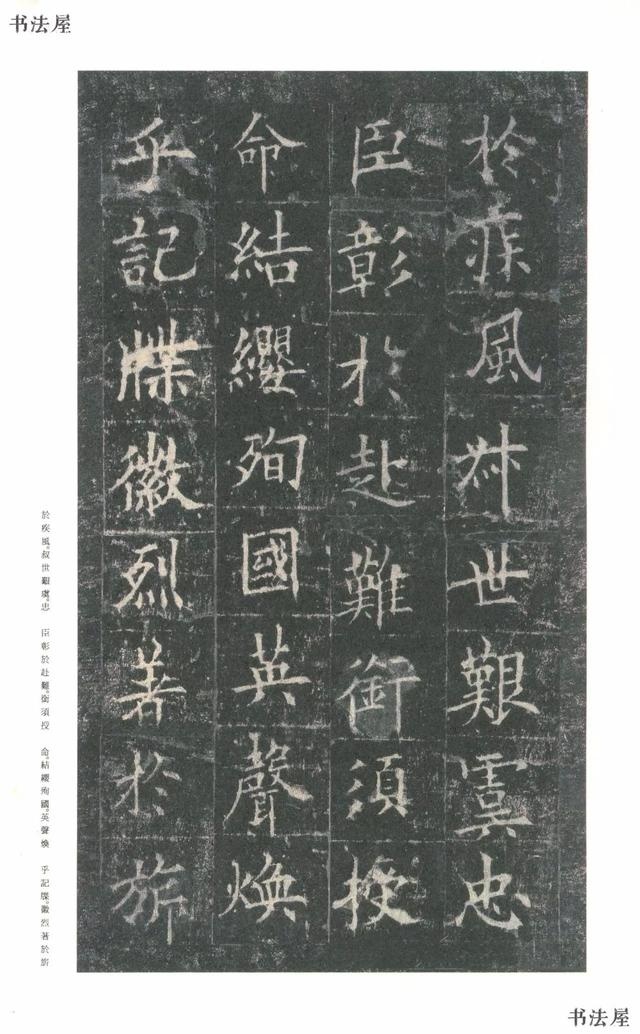 书法屋
於疾風叔世艱虞忠
臣彰於赴難銜須授
命結纓殉國英聲煥
乎記牒徽烈著於旂
於疾風。叔世艱虞。忠 臣彰於赴難。銜須授 命。結纓殉國。英聲煥 乎記牒。徽烈著於旂
书法屋